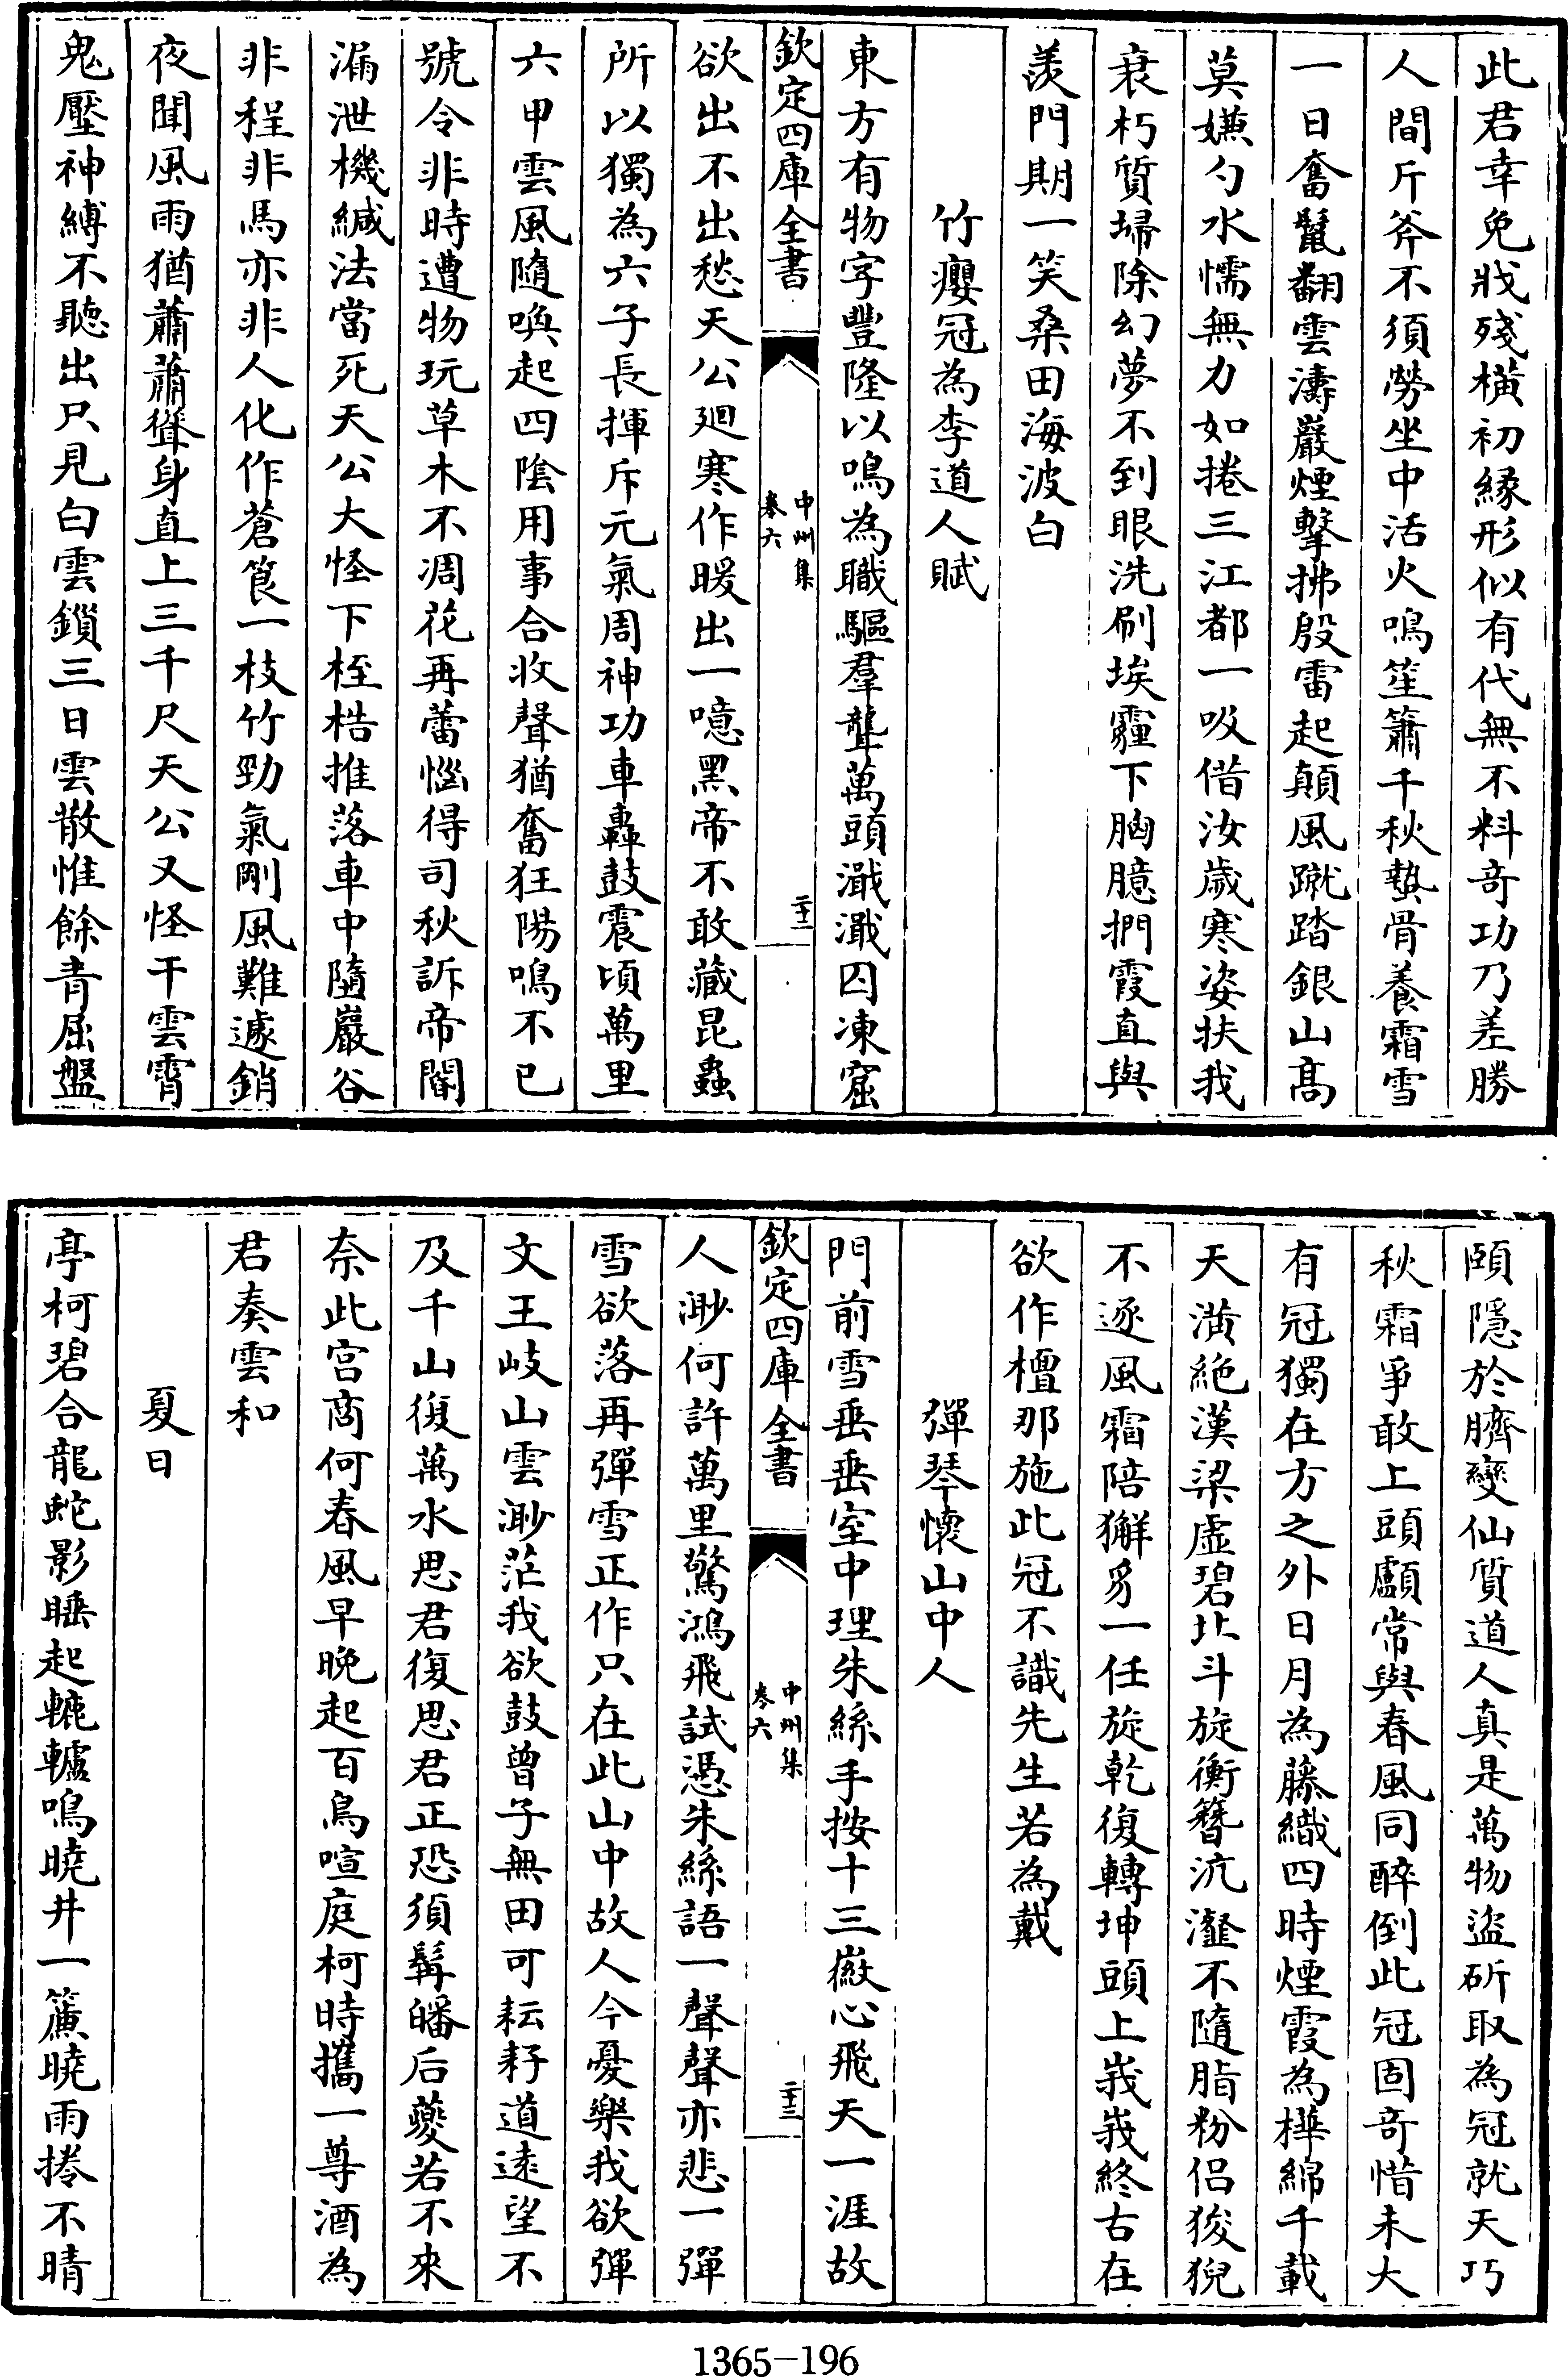 此君幸免戕殘横初緣形似有代無不料奇功乃差勝
人間斤斧不須勞坐中活火鳴笙簫千秋蟄骨養霜雪
一日奮鬛翻雲濤巖煙擊拂殷雷起顛風蹴踏銀山髙
莫嫌勺水懦無力如捲三江都一吸借汝歲寒姿扶我
衰朽質埽除幻夢不到眼洗刷埃霾下胸臆捫霞直與
羨門期一笑桑田海波白
竹癭冠為李道人賦
東方有物字豐隆以鳴為職驅羣聾萬頭濈濈囚凍窟
欽定四庫全書
中州集
卷六
二十二
欲出不出愁天公廻寒作暖出一噫黑帝不敢藏昆蟲
所以獨為六子長揮斥元氣周神功車轟鼓震頃萬里
六甲雲風隨喚起四隂用事合收聲猶奮狂陽鳴不已
號令非時遭物玩草木不凋花再蕾惱得司秋訴帝閽
漏泄機緘法當死天公大怪下桎梏推落車中隨巖谷
非程非馬亦非人化作蒼筤一枝竹勁氣剛風難遽銷
夜聞風雨猶蕭蕭聳身直上三千尺天公又怪干雲霄
鬼壓神縛不聽出只見白雲鎖三日雲散惟餘青屈盤
頤隱於臍變仙質道人真是萬物盜斫取為冠就天巧
秋霜爭敢上頭顱常與春風同醉倒此冠固奇惜未大
有冠獨在方之外日月為藤織四時煙霞為樺綿千載
天潢絶漢梁虚碧北斗旋衡簪沆瀣不隨脂粉侶狻猊
不逐風霜陪獬豸一任旋乾復轉坤頭上峩峩終古在
欲作檀那施此冠不識先生若為戴
彈琴懷山中人
門前雪垂垂室中理朱絲手按十三徽心飛天一涯故
欽定四庫全書
中州集
卷六
二十三
人渺何許萬里驚鴻飛試憑朱絲語一聲聲亦悲一彈
雪欲落再彈雪正作只在此山中故人今憂樂我欲彈
文王岐山雲渺茫我欲鼓曾子無田可耘耔道逺望不
及千山復萬水思君復思君正恐須髯皤后夔若不來
奈此宫商何春風早晚起百鳥喧庭柯時攜一尊酒為
君奏雲和
夏日
亭柯碧合龍蛇影睡起轆轤鳴曉井一簾曉雨捲不晴
1365-196